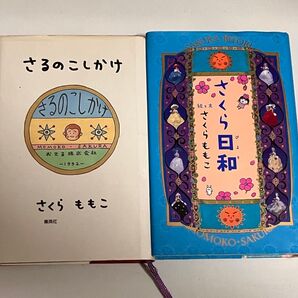 さるのこしかけ
さるのこしかけ
MOMOKO・SAKURA
おさる株式会社
—1992—
さくら ももこ
集英社
さくら日和
絵と文
さくらももこ
MOMOKO・SAKURA